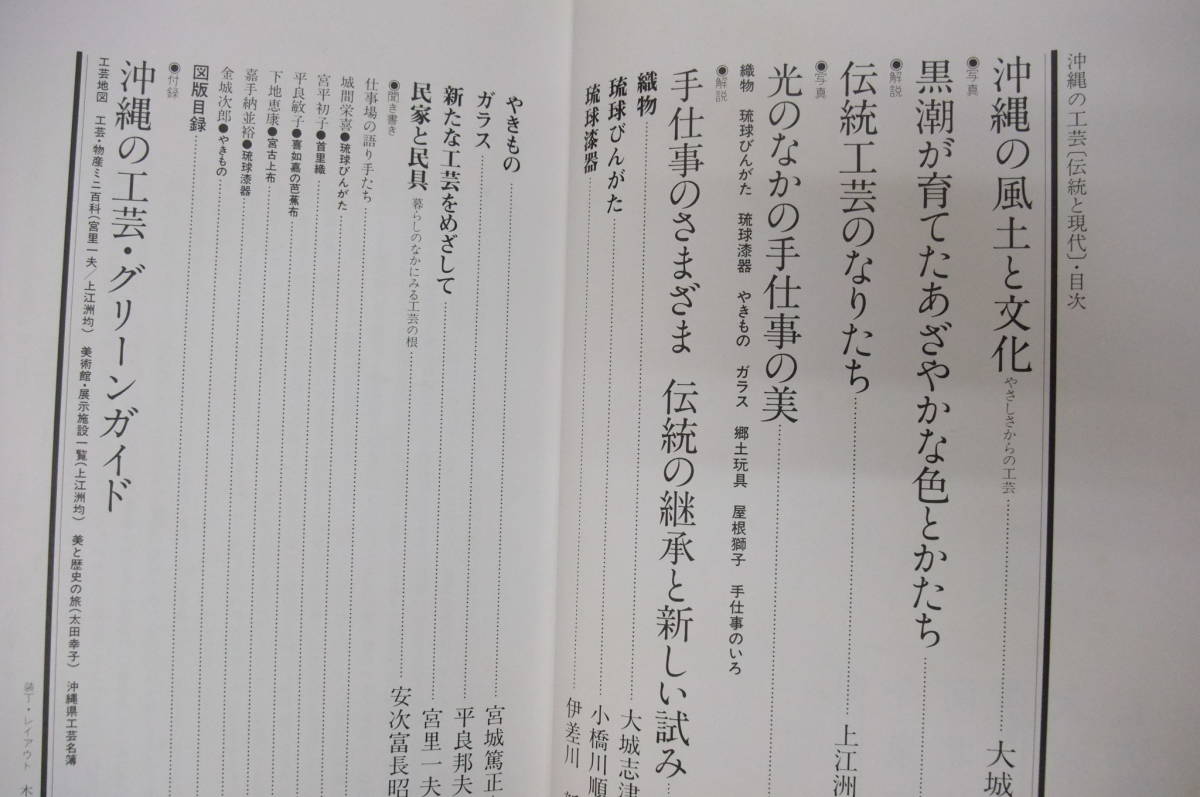 沖縄の工芸〔伝統と現代〕・目次
沖縄の風土と文化 やさしさからの工芸 大城
●写真
黒潮が育てたあざやかな色とかたち
●解説
伝統工芸のなりたち 上江洲
●写真
光のなかの手仕事の美
織物 琉球びんがた 琉球漆器 やきもの ガラス 郷土玩具 屋根獅子 手仕事のいろ
●解説
手仕事のさまざま 伝統の継承と新しい試み
織物 大城志津
琉球びんがた 小橋川順
琉球漆器 伊差川
やきもの 宮城篤正
ガラス 平良邦夫
新たな工芸をめざして 宮里一夫
民家と民具 暮らしのなかにみる工芸の根 安次富長昭
●聞き書き
仕事場の語り手たち
城間栄喜●琉球びんがた
宮平初子●首里織
平良敏子●喜如嘉の芭蕉布
下地恵康●宮古上布
嘉手納並裕●琉球漆器
金城次郎●やきもの
図版目録
●付録
沖縄の工芸・グリーンガイド
工芸地図 工芸・物産ミニ百科(宮里一夫/上江洲均) 美術館・展示施設一覧(上江洲均) 美と歴史の旅(太田幸子) 沖縄県工芸名簿
装丁・レイアウト 木